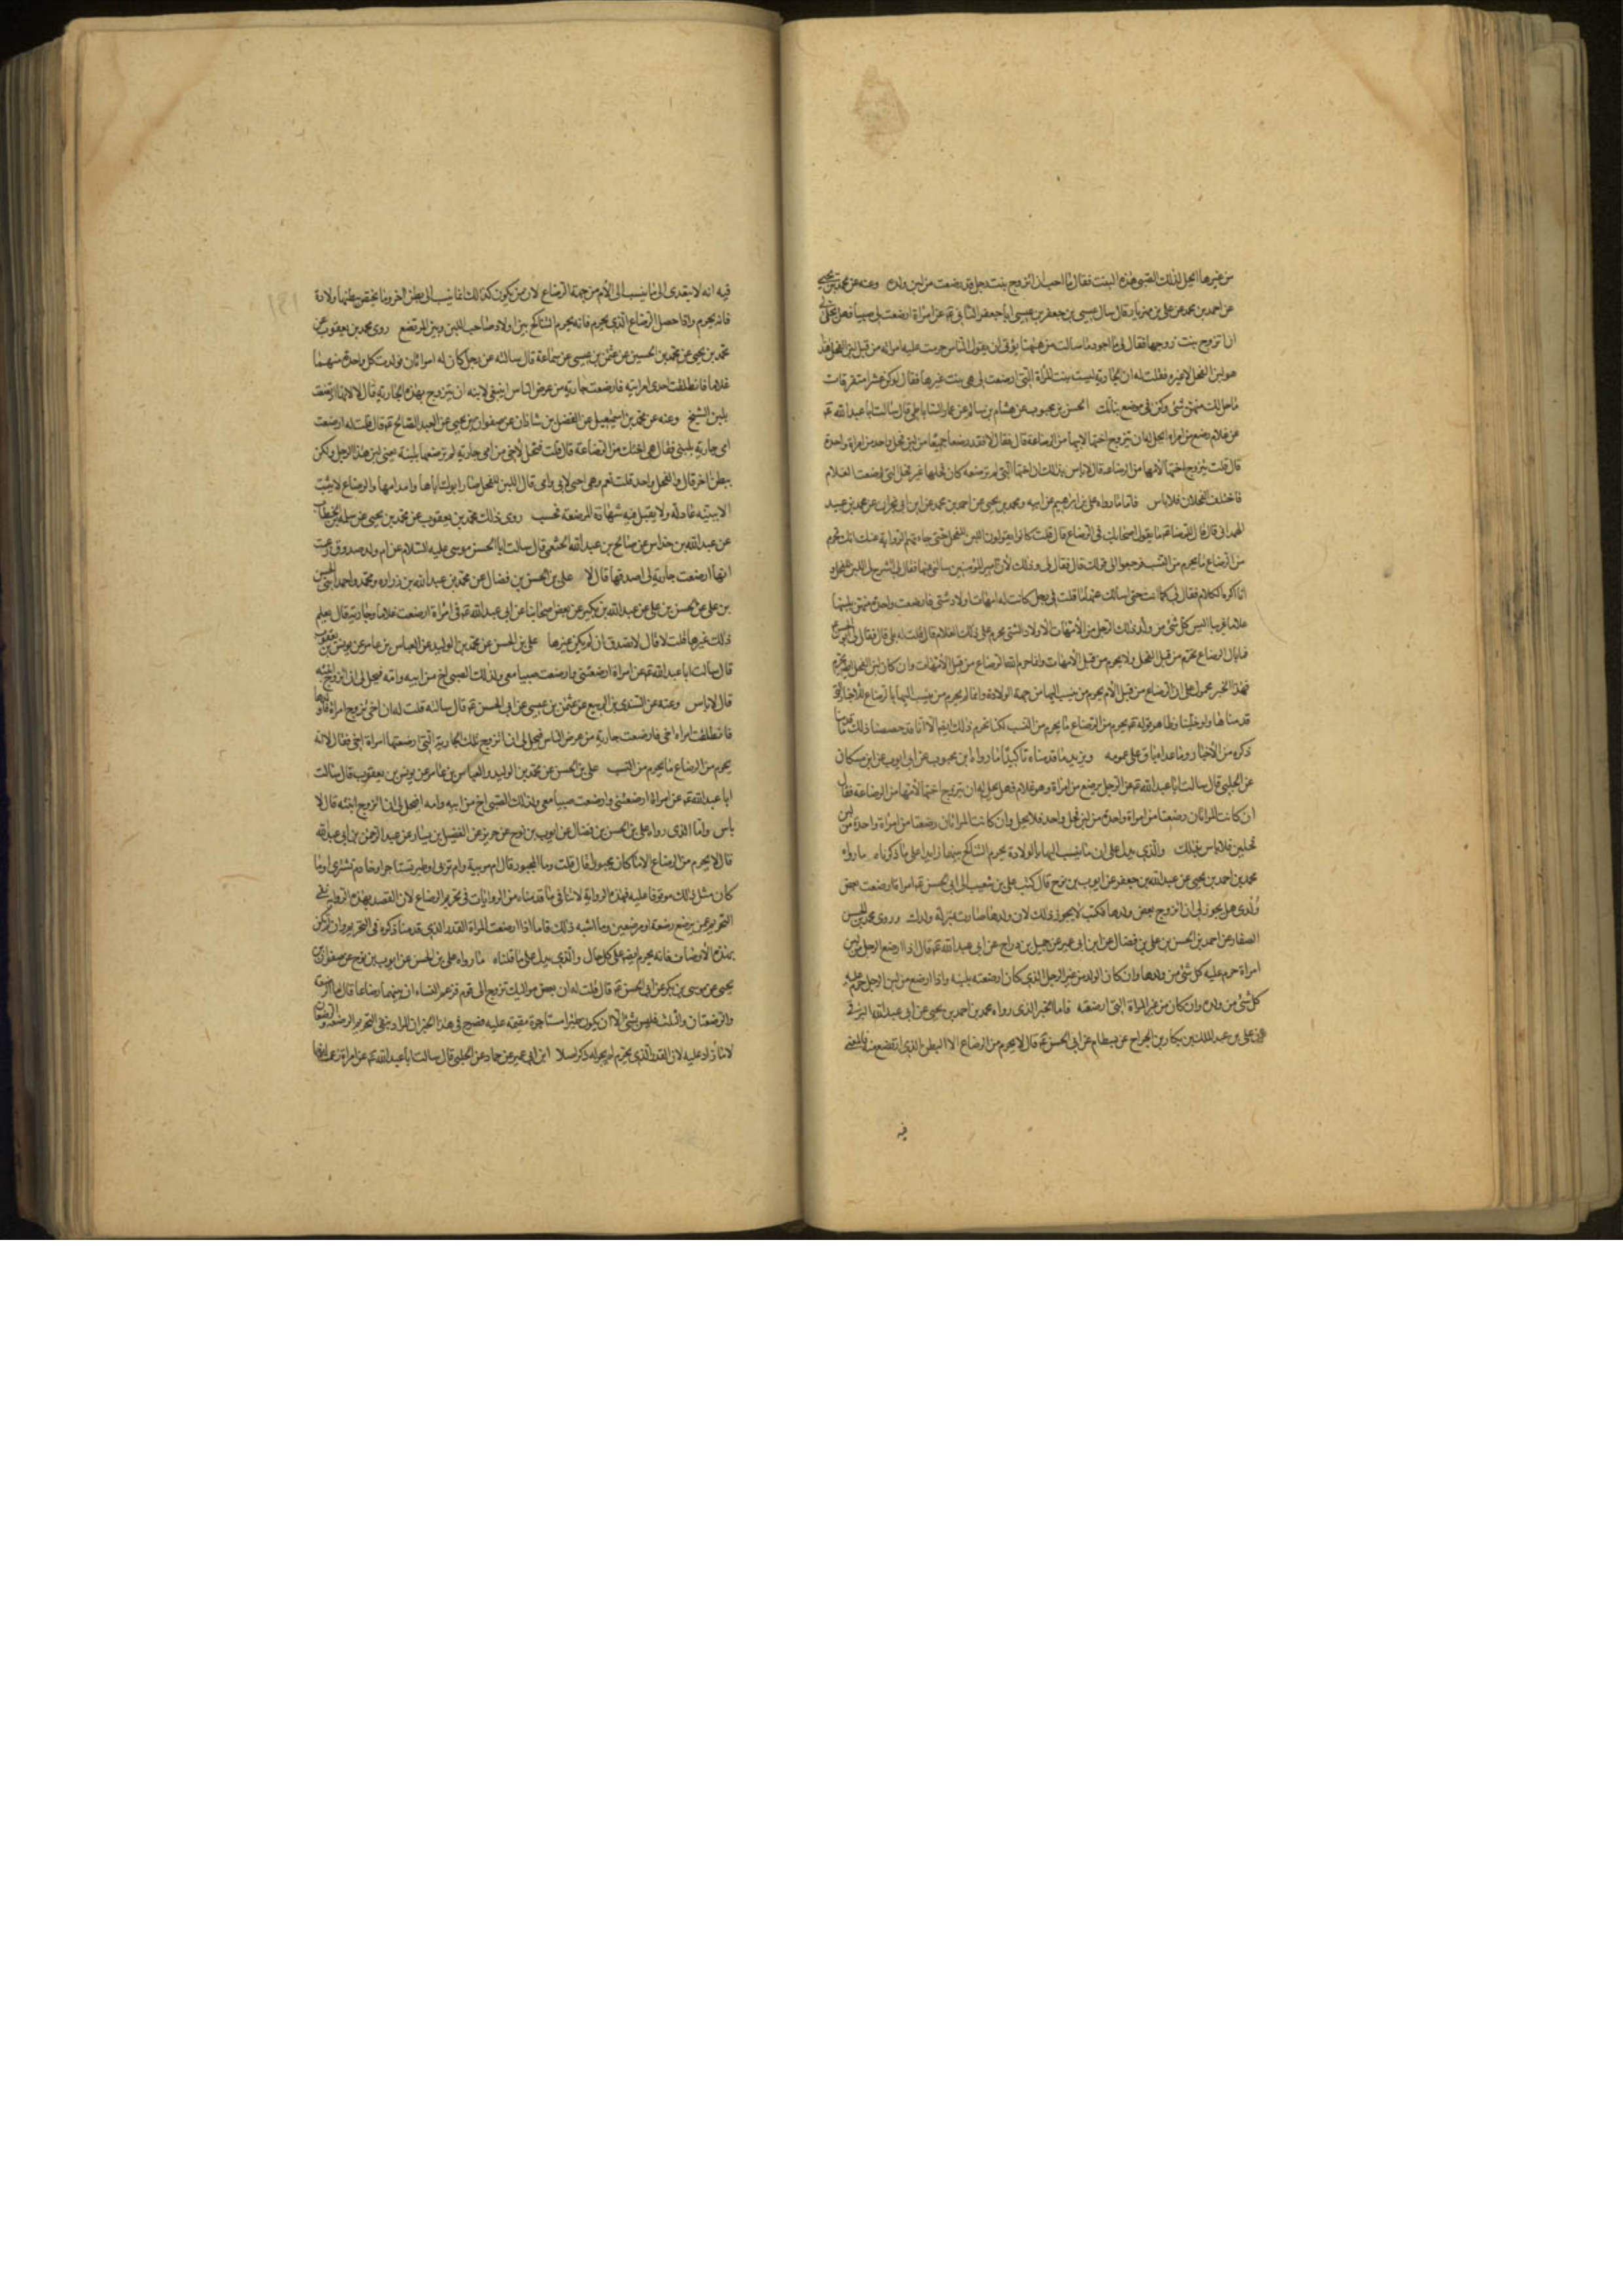 من غيرها ايحل لذلك الصبى هذه البنت فقال ما احب ان اتزوج بنت رجل قد رضعت من لبن ولده وعنه عن محمد بن يحيى
عن احمد بن محمد عن على بن مهزيار قال سال عيسى بن جعفر بن عيسى ابا جعفر الثانى ع عن امراة ارضعت لى صبيا فهل يحل لى
ان اتزوج بنت زوجها فقال لى ما اجود ما سالت من ههنا يؤتى ان يقول الناس حرمت عليه امراته من قبل لبن الفحل هذا
هو لبن الفحل لا غيره فقلت له ان الجارية ليست بنت المراة التى ارضعت لى هى بنت غيرها فقال لو كن عشرا متفرقات
ما حل لك منهن شئ وكن فى موضع بناتك الحسن بن محبوب عن هشام بن سالم عن عمار الساباطى قال سالت ابا عبد الله ع
عن غلام رضع من امراة ايحل له ان يتزوج اختها لابيها من الرضاعة قال فقال لا فقد رضعا جميعا من لبن فحل واحد من امراة واحدة
قال قلت يتزوج اختها لامها من الرضاعة قال لا باس بذلك ان اختها التى لم ترضعه كان فحلها غير فحل التى ارضعت الغلام
فاختلف الفحلان فلا باس فاما ما رواه على بن ابرهيم عن ابيه ومحمد بن يحيى عن احمد بن محمد عن ابن ابى نجران عن محمد بن عبيد
الهمدانى قال قال الرضا ع ما يقول اصحابك فى الرضاع قال قلت كانوا يقولون اللبن للفحل حتى جاءتهم الرواية عنك انك تحرم
من الرضاع ما يحرم من النسب فرجعوا الى قولك قال فقال لى وذلك لان امير المؤمنين سالنى عنها فقال لى اشرح لى اللبن للفحل و
انا اكره الكلام فقال لى كما انت حتى اسالك عنها ما قلت فى رجل كانت له امهات اولاد شتى فارضعت واحدة منهن بلبنها
غلاما غريبا اليس كل شئ من ولد ذلك الرجل من الامهات الاولاد الشتى يحرم على ذلك الغلام قال قلت له بلى قال فقال لى ابو الحسن ع
فما بال الرضاع يحرم من قبل الفحل ولا يحرم من قبل الامهات وانما حرم الله الرضاع من قبل الامهات وان كان لبن الفحل ايضا يحرم
فهذا الخبر محمول على ان الرضاع من قبل الام يحرم من ينسب اليها من جهة الولادة وانما لم يحرم من ينسب اليها بالرضاع للاخبار التى
قدمناها ولو خلينا وظاهر قوله ع يحرم من الرضاع ما يحرم من النسب لكنا نحرم ذلك ايضا الا انا قد خصصنا ذلك لما قدمنا
ذكره من الاخبار وما عداه باق على عمومه ويزيد ما قدمناه تاكيدا ما رواه ابن محبوب عن ابى ايوب عن ابن مسكان
عن الحلبى قال سالت ابا عبد الله ع عن الرجل يرضع من امراة وهو غلام فهل يحل له ان يتزوج اختها لامها من الرضاعة فقال
ان كانت المراتان رضعتا من امراة واحدة من لبن فحل واحد فلا يحل وان كانت المراتان رضعتا من امراة واحدة من لبن
فحلين فلا باس بذلك والذى يدل على ان ما ينسب اليها بالولادة يحرم التناكح بينهما زايدا على ما ذكرناه ما رواه
محمد بن احمد بن يحيى عن عبد الله بن جعفر عن ايوب بن نوح قال كتب على بن شعيب الى ابى الحسن ع امراة ارضعت بعض
ولدى هل يجوز لى ان اتزوج بعض ولدها فكتب لا يجوز ذلك لان ولدها صارت بمنزلة ولدك وروى محمد بن الحسن
الصفار عن احمد بن الحسن بن على بن فضال عن ابن ابى عمير عن جميل بن دراج عن ابى عبد الله ع قال اذا ارضع الرجل من لبن
امراة حرم عليه كل شئ من ولدها وان كان الولد من غير الرجل الذى كان ارضعته بلبنه واذا ارضع من لبن الرجل حرم عليه
كل شئ من ولده وان كان من غير المراة التى ارضعته فاما الخبر الذى رواه محمد بن احمد بن يحيى عن ابى عبد الله البرقى
عن على بن عبد الملك بن بكار بن الجراح عن بسطام عن ابى الحسن ع قال لا يحرم من الرضاع الا البطن الذى ارتضع منه فالمعنى
فيه
١٤١
فيه انه لا يتعدى الى ما ينسب الى الام من جهة الرضاع لان من يكون كذلك انما ينسب الى بطن اخر وما يختص ببطنها ولادة
فانه يحرم واذا حصل الرضاع الذى يحرم فانه يحرم التناكح بين اولاد صاحب اللبن وبين المرتضع روى محمد بن يعقوب عن
محمد بن يحيى عن محمد بن الحسين عن عثمن بن عيسى عن سماعة قال سالته عن رجل كان له امراتان فولدت كل واحدة منهما
غلاما فانطلقت احدى امراتيه فارضعت جارية من عرض الناس اينبغى لابنه ان يتزوج بهذه الجارية قال لا لانها ارتضعت
بلبن الشيخ وعنه عن محمد بن اسمعيل عن الفضل بن شاذان عن صفوان بن يحيى عن العبد الصالح ع قال قلت له ارضعت
امى جارية بلبنى فقال هى اختك من الرضاعة قال قلت فتحل لاخى من امى جارية لم ترضعها بلبنه يعنى لبن هذا الرجل ولكن
ببطن اخر قال والفحل واحد قلت نعم وهى اختى لابى وامى قال اللبن للفحل صار ابوك اباها وامك امها والرضاع لا يثبت
الا ببينه عادلة ولا يقبل فيه شهادة المرضعه فحسب روى ذلك محمد بن يعقوب عن محمد بن يحيى عن سلمه بن الخطاب
عن عبد الله بن خداش عن صالح بن عبد الله الخثعمى قال سالت ابا الحسن موسى عليه السلام عن ام ولد صدوق زعمت
انها ارضعت جارية لى اصدقها قال لا على بن الحسن بن فضال عن محمد بن عبد الله بن زراره ومحمد واحمد ابنى الحسن
بن على عن الحسن بن على عن عبد الله بن بكير عن بعض اصحابنا عن ابى عبد الله ع فى امراة ارضعت غلاما وجارية قال يعلم
ذلك غيرها قلت لا قال لا تصدق ان لم يكن غيرها على بن الحسن عن محمد بن الوليد عن العباس بن عامر عن يونس بن يعقوب
قال سالت ابا عبد الله ع عن امراة ارضعتنى وارضعت صبيا معى ولذلك الصبى اخ من ابيه وامه فيحل لى ان اتزوج ابنته
قال لا باس وعنه عن السندى بن الربيع عن عثمن بن عيسى عن ابى الحسن ع قال سالته قلت له ان اخى تزوج امراة فاولدها
فانطلقت امراة اخى فارضعت جارية من عرض الناس فيحل لى ان اتزوج تلك الجارية التى ارضعتها امراة اخى فقال لا انه
يحرم من الرضاع ما يحرم من النسب على بن الحسن عن محمد بن الوليد والعباس بن عامر عن يونس بن يعقوب قال سالت
ابا عبد الله ع عن امراة ارضعتنى وارضعت صبيا معى ولذلك الصبى اخ من ابيه وامه ايحل لى ان اتزوج ابنته قال لا
باس واما الذى رواه على بن الحسن بن فضال عن ايوب بن نوح عن حريز عن الفضيل بن يسار عن عبد الرحمن بن ابى عبد الله
قال لا يحرم من الرضاع الا ما كان مجبورا قال قلت وما المجبور قال ام مربية وام تربى او ظير تستاجر او خادم تشترى او ما
كان مثل ذلك موقوفا عليه فهذه الرواية لا تنافى ما قدمناه من الروايات فى تحريم الرضاع لان القصد بهذه الرواية نفى
التحريم عمن يرضع رضعة او رضعتين وما اشبه ذلك فاما اذا ارضعت المراة القدر الذى قدمنا ذكره فى التحريم وان لم تكن
بهذه الاوصاف فانه يحرم ايضا على كل حال والذى يدل على ما قلناه ما رواه على بن الحسن عن ايوب بن نوح عن صفوان بن
يحيى عن موسى بن بكر عن ابى الحسن ع قال قلت له ان بعض مواليك تزوج الى قوم فزعم النساء ان بينهما رضاعا قال اما الرضعة
والرضعتان والثلث فليس بشئ الا ان يكون ظئرا مستاجرة مقيمه عليه فصرح فى هذا الخبر ان المراد بنفى التحريم الرضعة والرضعتان
لا ما زاد عليه لان القدر الذى يحرم لم يجر له ذكر اصلا ابن ابى عمير عن حماد عن الحلبى قال سالت ابا عبد الله ع عن امراة زعمت انها